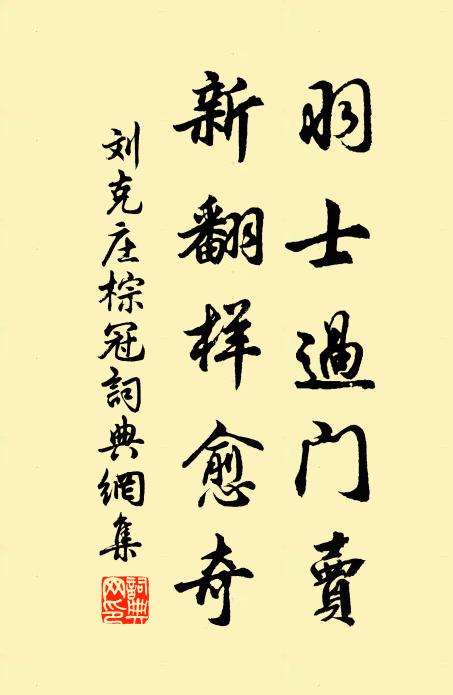 羽士過门賣
新翻样愈奇
刘克庄棕冠詞典網集
詞典網印